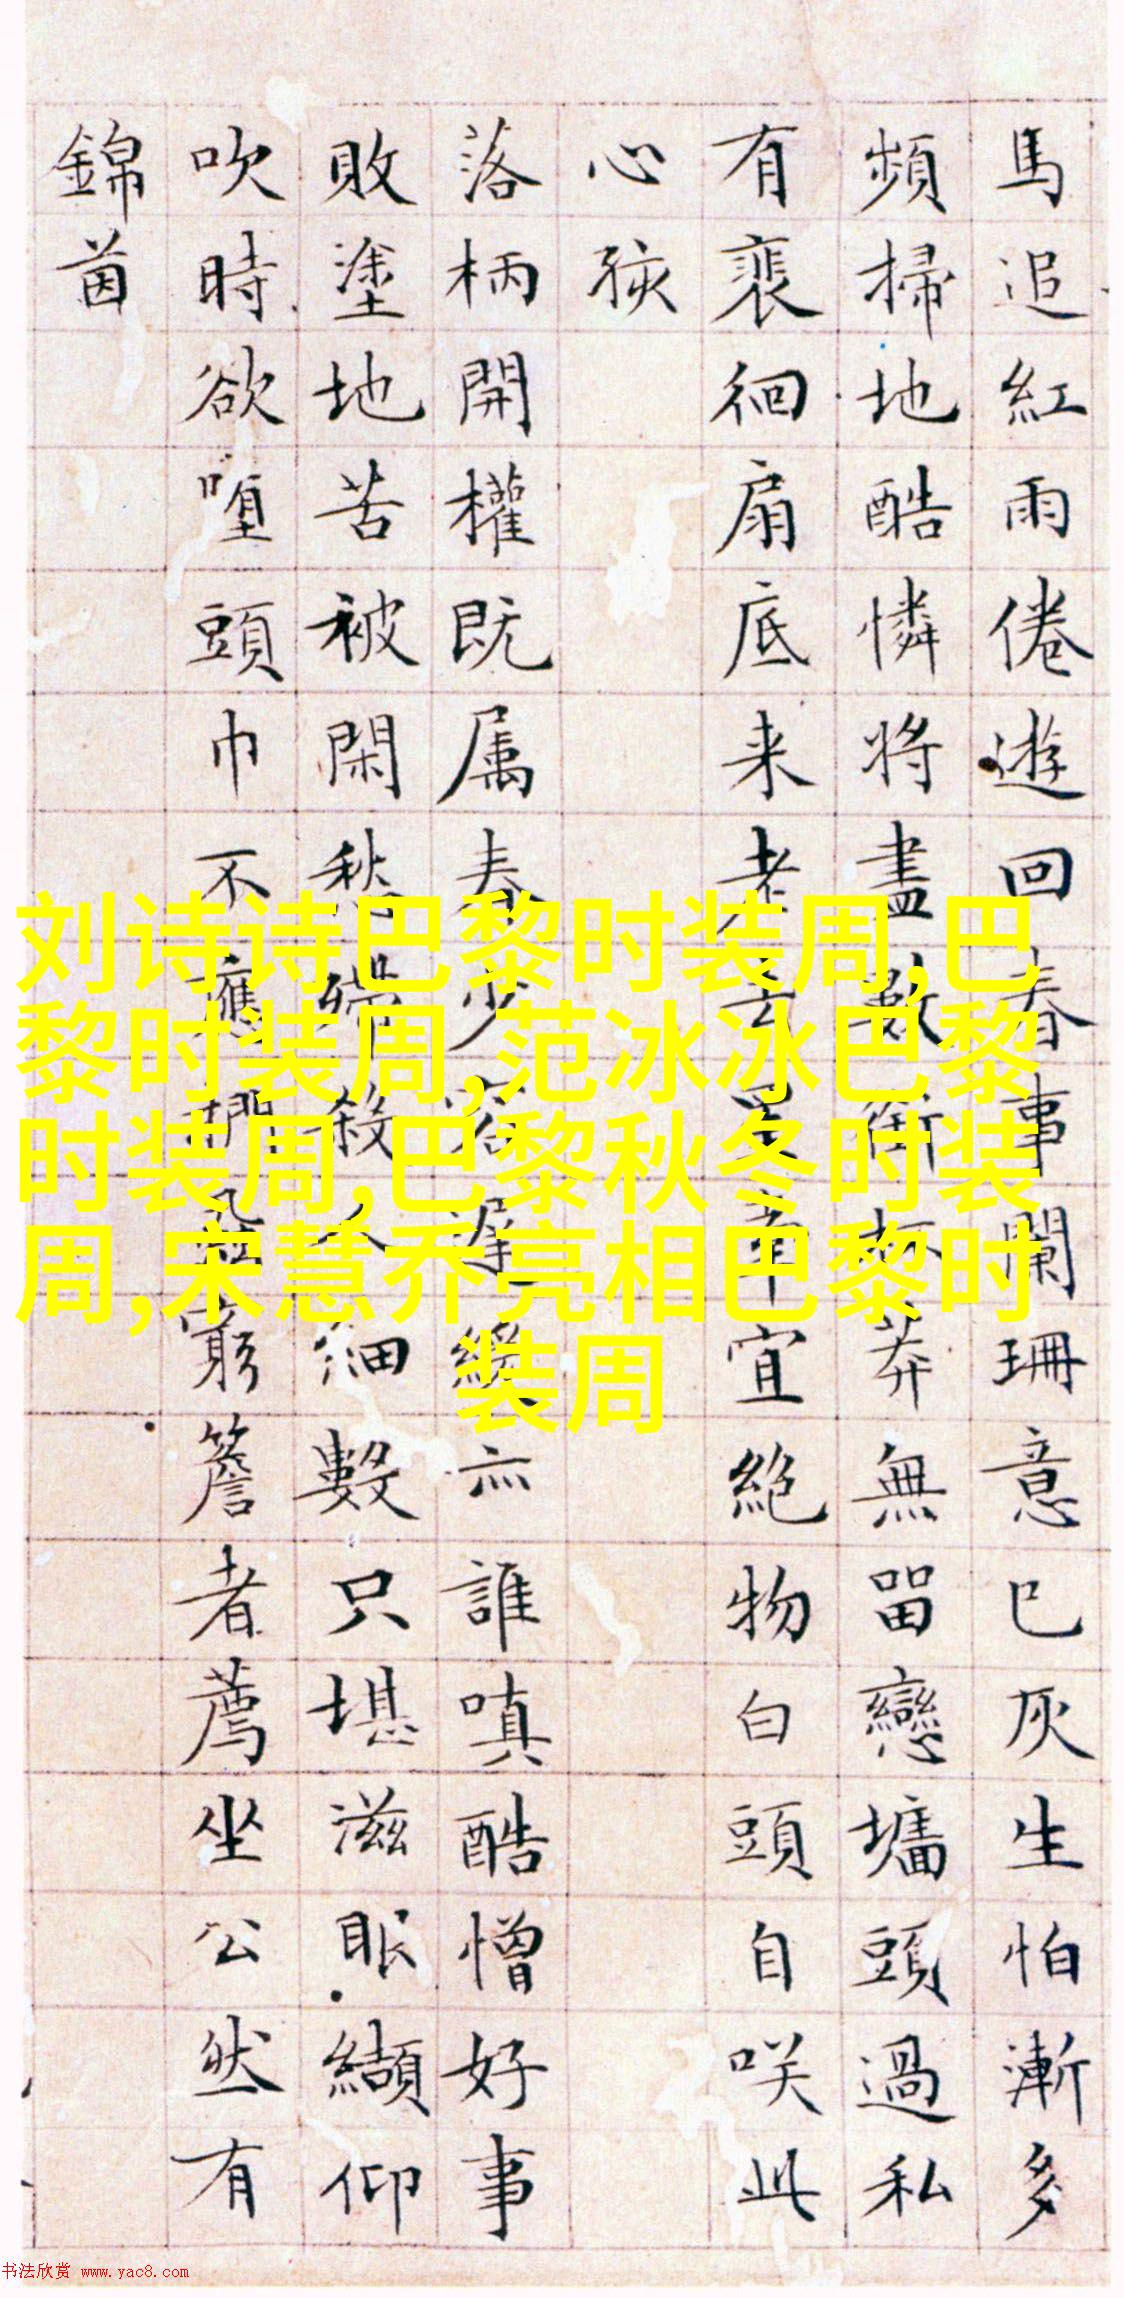 馬追紅雨倦遊回春事闌珊意已灰生怕漸多
頻掃地酷憐將盡數銜杯莽無留戀墻頭過私
有裵徊扇底来老去辜宜絶物白頭自咲此
心孩
落柄開權既属春少容遲緩亦誰嗔酷憎好事
敗塗地苦被閑愁殺人細數只堪滋眼纈仰
吹時欲堕頭巾不應捫蝨窮簷者薦坐公然有
錦茵
刘诗诗巴黎时装周,巴
黎时装周,范冰冰巴黎
时装周,巴黎秋冬时装
周,宋慧乔亮相巴黎时
装周
书法欣赏 www.yac8.com